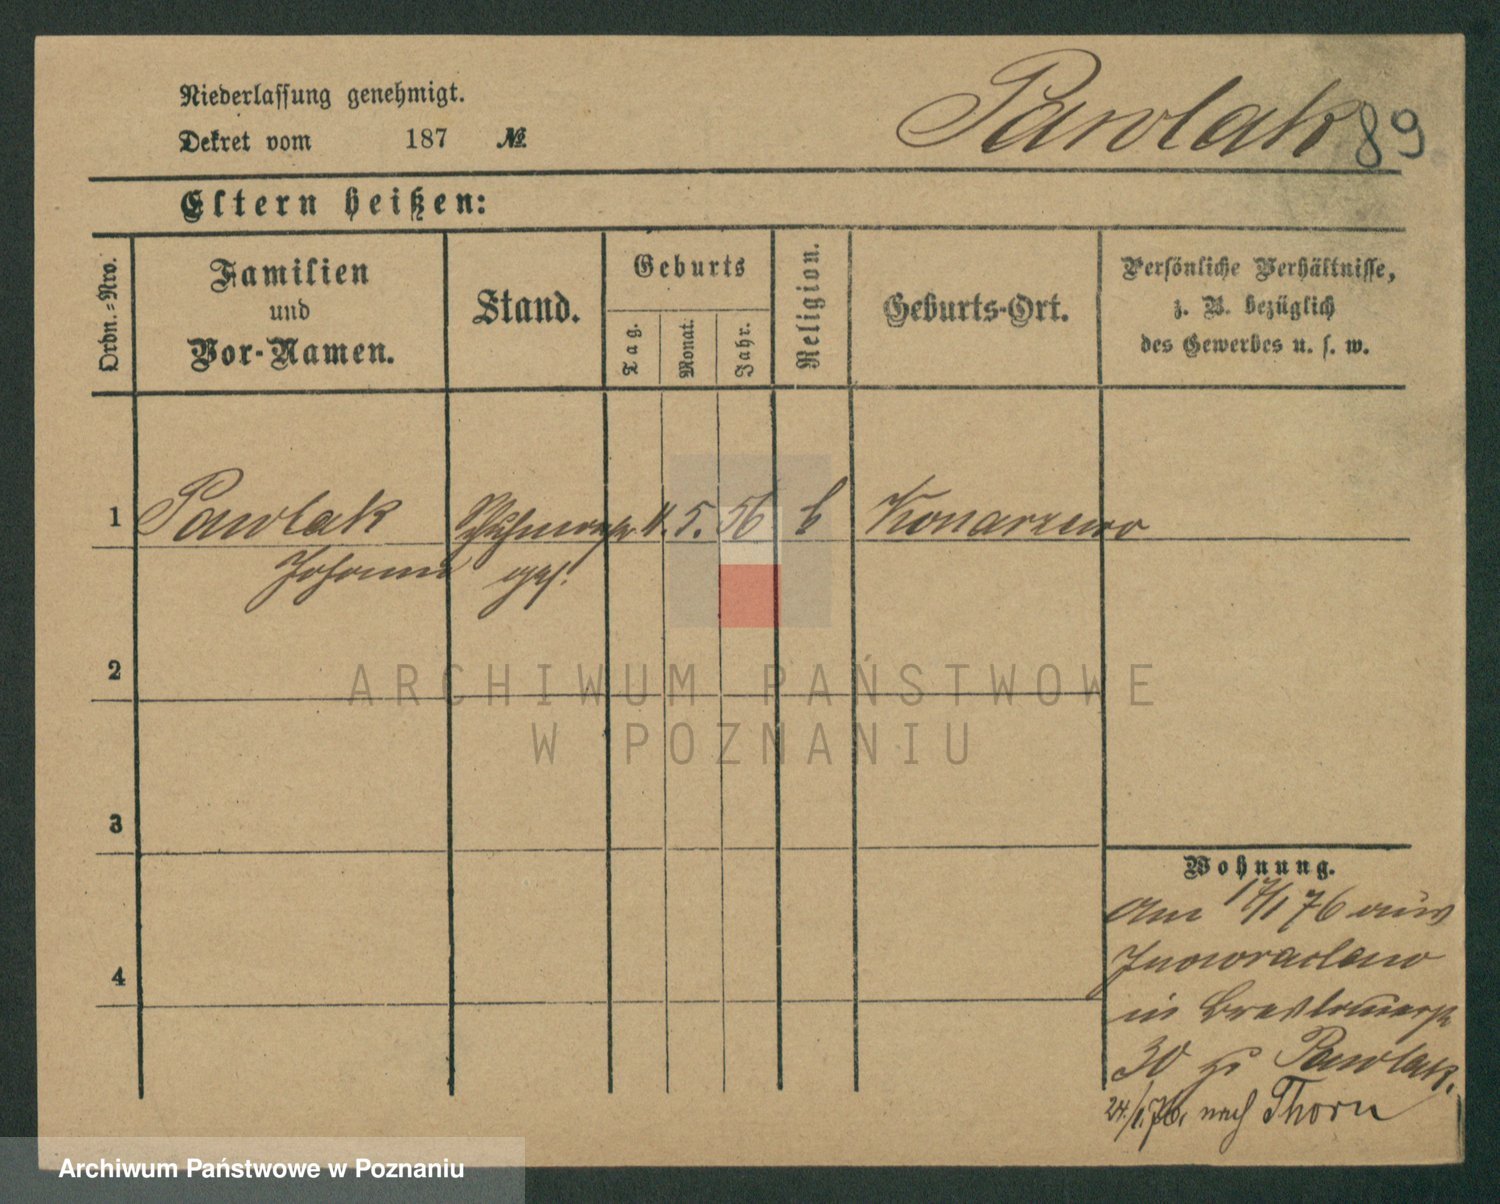 Niederlassung genehmigt.
Dekret vom 187 №
Pawlak 89
Eltern heißen:
Ordn.-Nro.
Familien
und
Vor-Namen.
Stand.
Geburts
Tag.
Monat.
Jahr.
Religion.
Geburts-Ort.
Persönliche Verhältnisse,
z. B. bezüglich
des Gewerbes u. s. w.
1 Pawlak 11. 5. 56 Konarzewo
Johann ges.
2
ARCHIWUM PAŃSTWOWE
W POZNANIU
3
4
Wohnung.
Am 17/1 76 aus
Inowraclaw
in Breslauerstr
30 zu Pawlak.
24./1.76. nach Thorn
Archiwum Państwowe w Poznaniu